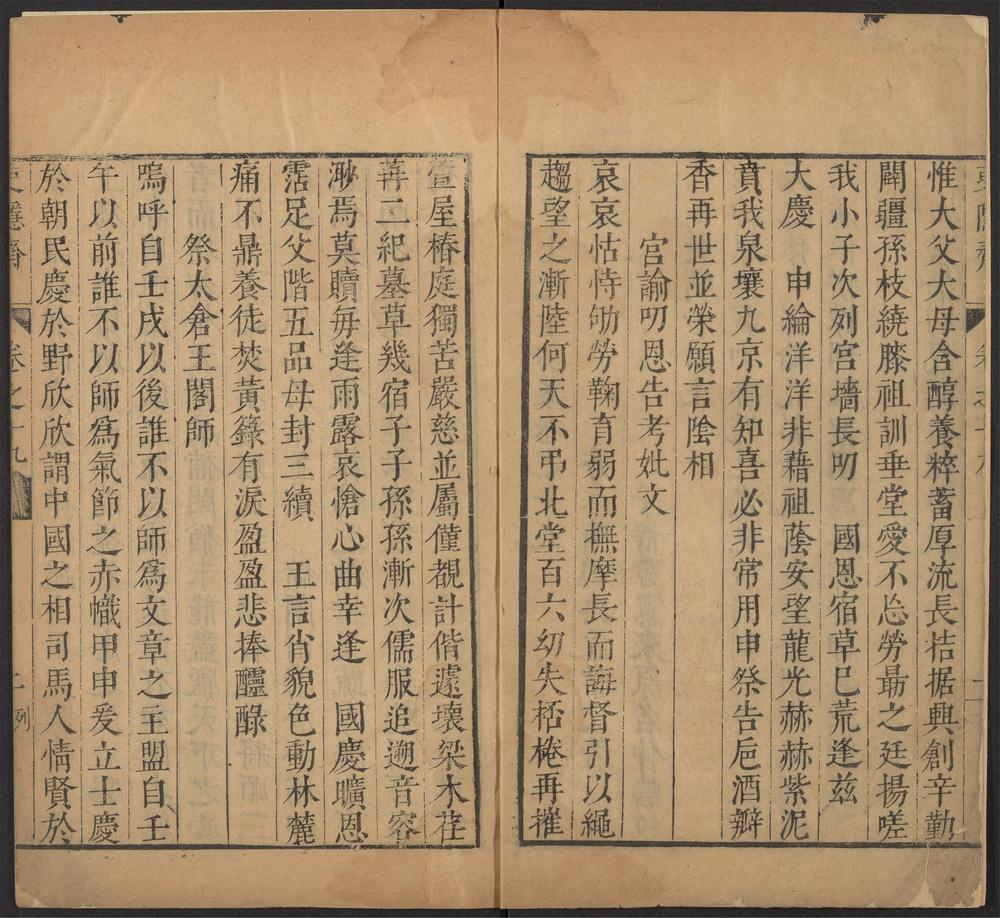 惟大父大母含醇養粹蓄厚流長拮据興創辛勤
闢疆孫枝繞膝祖訓垂堂愛不忘勞最之廷揚嗟
我小子次列宫墻長叨　國恩宿草巳荒逢兹
大慶　申綸洋洋非藉祖蔭安望龍光赫赫紫泥
賁我泉壤九京有知喜必非常用申祭告巵酒瓣
香再世並榮願言陰相
宫諭叨恩告考妣文
哀哀怙恃劬勞鞠育弱而撫摩長而誨督引以繩
趨望之漸陸何天不弔北堂百六幼失桮棬再摧
萱屋椿庭獨苦嚴慈並屬僅覩計偕遽壞梁木荏
苒二紀墓草幾宿子子孫孫漸次儒服追遡音容
渺焉莫贖每逢雨露哀愴心曲幸逢　國慶曠恩
霑足父階五品母封三續　王言肖貌色動林麓
痛不鼎養徒焚黄籙有淚盈盈悲捧醽醁
祭太倉王閣師
嗚呼自壬戌以後誰不以師爲文章之主盟自壬
午以前誰不以師爲氣節之赤幟甲申爰立士慶
於朝民慶於野欣欣謂中國之相司馬人情賢於
卷之十九
二